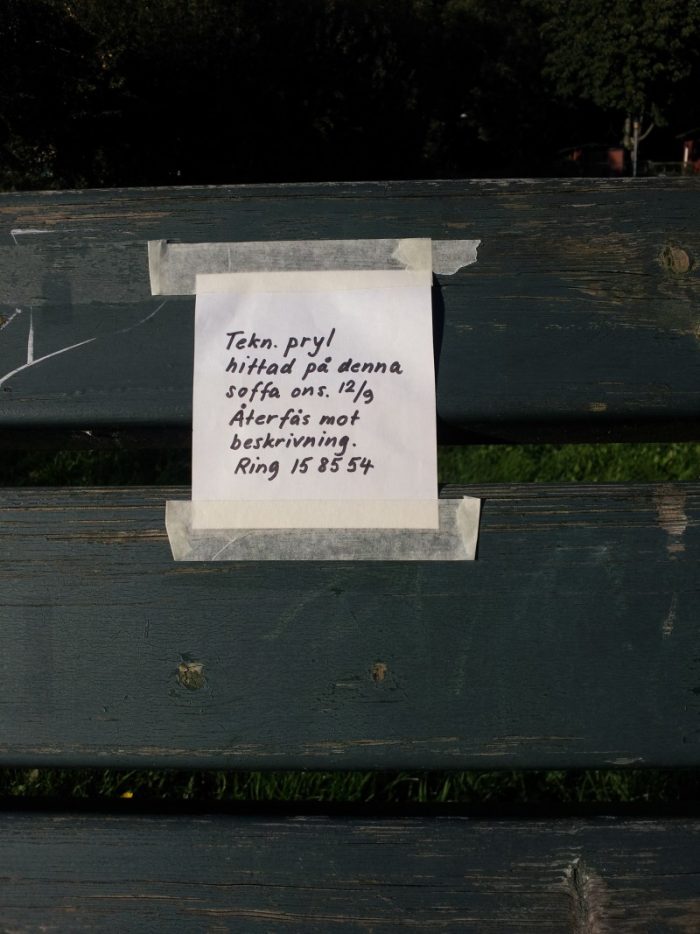 Tekn. pryl
hittad på denna
soffa ons. 12/9
Återfås mot
beskrivning.
Ring 15 85 54